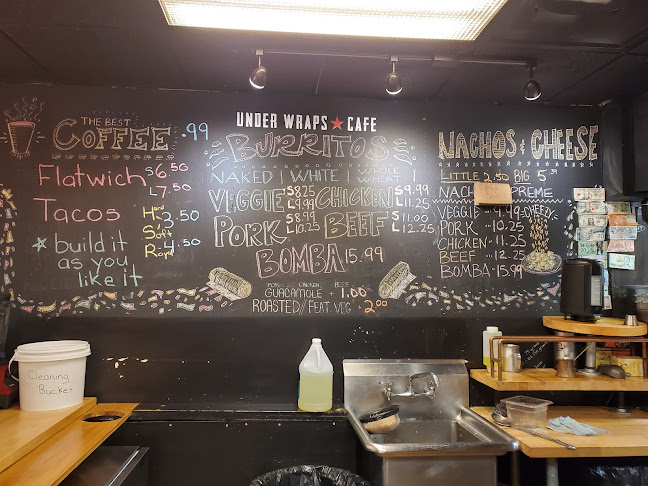 THE BEST
COFFEE .99
Flatwich S 6.50
L 7.50
Tacos Hard 3.50
& Soft
Royal 4.50
build it
as you
like it
UNDER WRAPS ★ CAFE
BURRITOS
NAKED | WHITE | WHOLE WHEAT
VEGGIE S 8.25 L 9.99 CHICKEN S 9.99 L 11.25
PORK S 8.99 L 10.25 BEEF S 11.00 L 12.25
BOMBA 15.99
PORK CHICKEN BEEF
GUACAMOLE + 1.00
ROASTED // FEAT. VEG + 2.00
NACHOS & CHEESE
LITTLE 2.50 BIG 5.
NACH PREME
VEGGIE 9.99
PORK 10.25
CHICKEN 11.25
BEEF 12.25
BOMBA 15.99
CHEEZY
Cleaning
Bucket